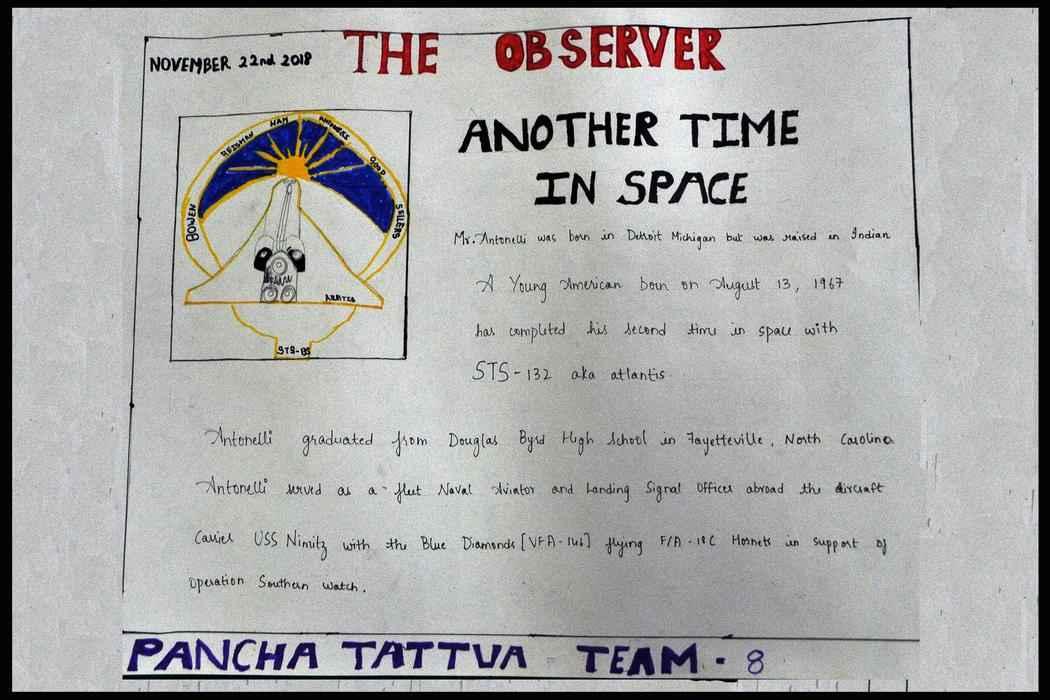 NOVEMBER 22nd 2018
THE OBSERVER
BOWEN REISMAN HAM ANTONELLI GOOD SELLERS
STS-
ANOTHER TIME
IN SPACE
Mr. Antonelli was born in Detroit Michigan but was raised in Indian
A Young American born on August 13, 1967
has completed his second time in space with
STS-132 aka atlantis
Antonelli graduated from Douglas Byrd High School in Fayetteville, North Carolina
Antonelli served as a fleet Naval Aviator and Landing Signal Officer abroad the aircraft
Carrier USS Nimitz with the Blue Diamonds [VFA-146] flying F/A-18C Hornets in support of
Operation Southern Watch.
PANCHA TATTVA TEAM - 8